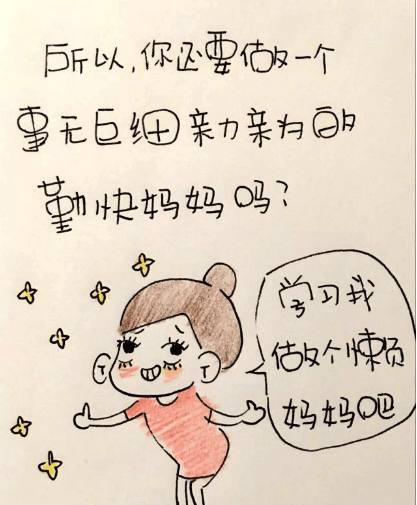 所以,你还要做一个
事无巨细亲力亲为的
勤快妈妈吗?
学习我
做个懒
妈妈吧